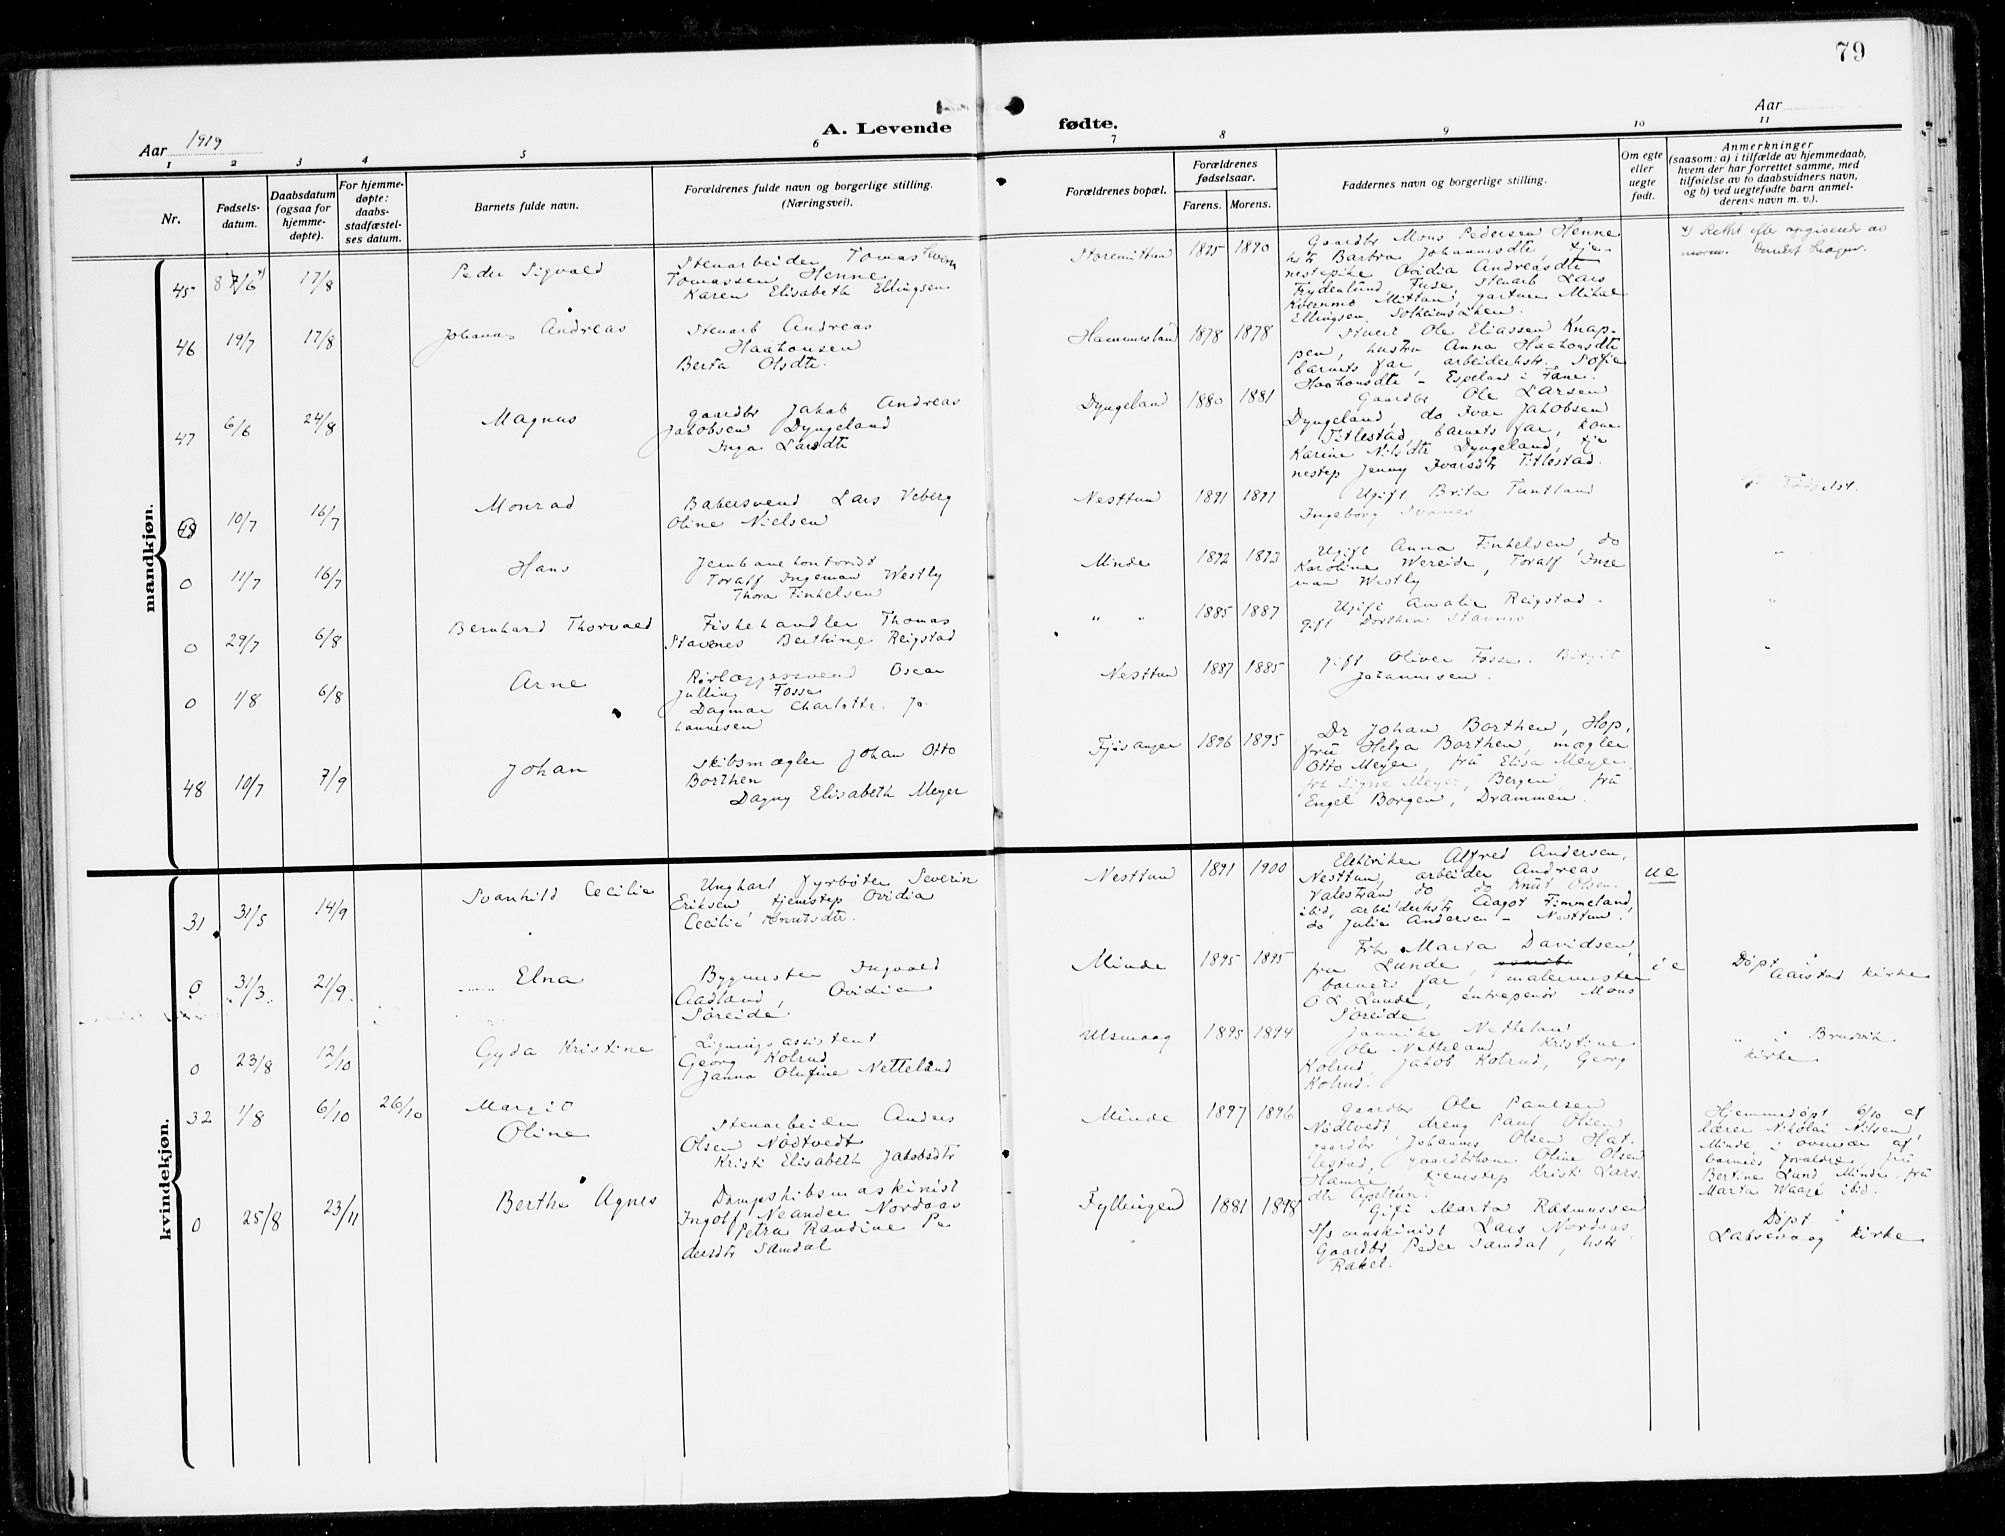 79
Aar 1919
A. Levende fødte.
Aar
1 2 3 4 5 6 7 8 9 10 11
Nr.
Fødsels-
datum.
Daabsdatum
(ogsaa for
hjemme-
døpte).
For hjemme-
døpte:
daabs-
stadfæstel-
ses datum.
Barnets fulde navn.
Forældrenes fulde navn og borgerlige stilling.
(Næringsvei).
Forældrenes bopæl.
Forældrenes
fødselsaar.
Farens. Morens.
Faddernes navn og borgerlige stilling.
Om egte
eller
uegte
født.
Anmerkninger
(saasom: a) i tilfælde av hjemmedaab,
hvem der har forrettet samme, med
tilføielse av to daabsvidners navn,
og b) ved uegtefødte barn anmel-
derens navn m. v.).
mandkjøn.
45 8 7/6 17/8
Peder Sigvald
Stenarbeider Tomas
Tomassen Henne
Karen Elisabeth Ellingsen
Storemittun 1895 1890
Gaardbr Mons Pedersen Henne
hstr Barbra Johannesdtr, tje-
nestepike Ovidia Andreasdtr
Frydenlund, Fuse, stenarb Lars
Kvernmo Mittun, gartner Mikal
Ellingsen, Solheimsviken.
Rettet efter opgivende av
moren.
46 19/7 17/8
Johannes Andreas
Stenarb Andreas
Haakonsen
Berta Olsdtr.
Hammersland 1878 1878
Ole Eliassen Knap-
pen, hustru Anna Haakonsdtr
barnets far, arbeiderhstr. Sofie
Haakonsdtr - Espeland i Fane.
47 6/6 24/8
Magnus
gaardbr Jakob Andreas
Jakobsen Dyngeland
Inga Larsdtr
Dyngeland 1880 1881
Gaardbr Ole Larsen
Dyngeland, do Ivar Jakobsen
Titlestad, barnets far, kone
Karine Nilsdtr Dyngeland, tje
nestep Jenny Ivarsdtr Titlestad.
48 10/7 16/7
Monrad
Bakersvend Lars Veberg
Oline Nielsen
Nesttun 1891 1891
Ugift Brita Tuntland
Ingeborg Svanes
0 11/7 16/7
Hans
Jernbanekontorist
Toralf Ingeman Westly
Thora Finkelsen
Minde 1892 1893
Ugift Anna Finkelsen, do
Karoline Wereide, Toralf Inge
man Westly
"
0 29/7 6/8
Bernhard Thorvald
Fiskehandler Thomas
Stavenes Berthine Reigstad
" " 1885 1887
Ugift Amalie Reigstad -
gift Dorthea Stavnes.
"
0 1/8 6/8
Arne
Rørlæggersvend Oscar
Julling Fosse
Dagmar Charlotte Jo-
hannesen
Nesttun 1887 1885
gift Oliver Fosse. Birgit
Johannesen.
"
48 10/7 7/9
Johan
Skibsmægler Johan Otto
Borthen
Dagny Elisabeth Meyer
Fjøsanger 1896 1895
Dr Johan Borthen, Hop,
fru Helga Borthen, mægler
Otto Meyer, fru Elisa Meyer
frk Signe Meyer, Bergen, fru
Engel Borgen, Drammen.
kvindekjøn.
31 31/5 14/9
Svanhild Cecilie
Ungkarl fyrbøter Severin
Eriksen tjenestep Ovidia
Cecilie Knutsdtr.
Nesttun 1891 1900
Elektriker Alfred Andersen,
Nesttun, arbeider Andreas
Valestrand do do Knut Olsen.
ibid, arbeiderhstr Aagot Timmeland,
do Julie Andersen - Nesttun.
ue
0 31/3 21/9.
Elna
Bygmester Ingvald
Aadland, Ovidia
Søreide
Minde 1895 1895
Frk Marta Davidsen,
fru Lunde,
barnets far malermester
O L Lunde, entrepenør Mons
Søreide
ie
Døpt i
Aarstad kirke
0 23/8 12/10
Gyda Kristine
Ligningsassistent
Georg Kolrud
Janna Olufine Netteland
Ulsmaag 1895 1894
Jannike Netteland
Ole Netteland Kristine
Kolrud, Jakob Kolrud, Georg
Kolrud.
" i Bruvik
kirke
32 1/8 6/10 26/10
Margit
Oline
Stenarbeider Anders
Olsen Nødtvedt
Kristi Elisabeth Jakobsdtr
Minde 1897 1896
Gaardbr Ole Paulsen
Nødtvedt dreng Paul Olsen
gaardbr Johannes Olsen Hat-
lestad, gaardbrkone Oline Olsen
Hamre tjenestep Kristi Lars-
dtr Apeltun.
Hjemmedøpt 6/10 af
lærer Nikolai Nilsen,
Minde i overvær af
barnets forældre, fru
Bertine Lund, Minde, fru
Marta Waage ibid.
0 25/8 23/11
Berthe Agnes
Dampskibsmaskinist
Ingolf Neander Nordaas
Petra Randine Pe
dersdtr Samdal
Fyllingen 1881 1898
Gift Marta Rasmussen
S/s maskinist Lars Nordaas
Gaardbr Peder Samdal, hstr
Rakel.
Døpt i
Laksevaag kirke